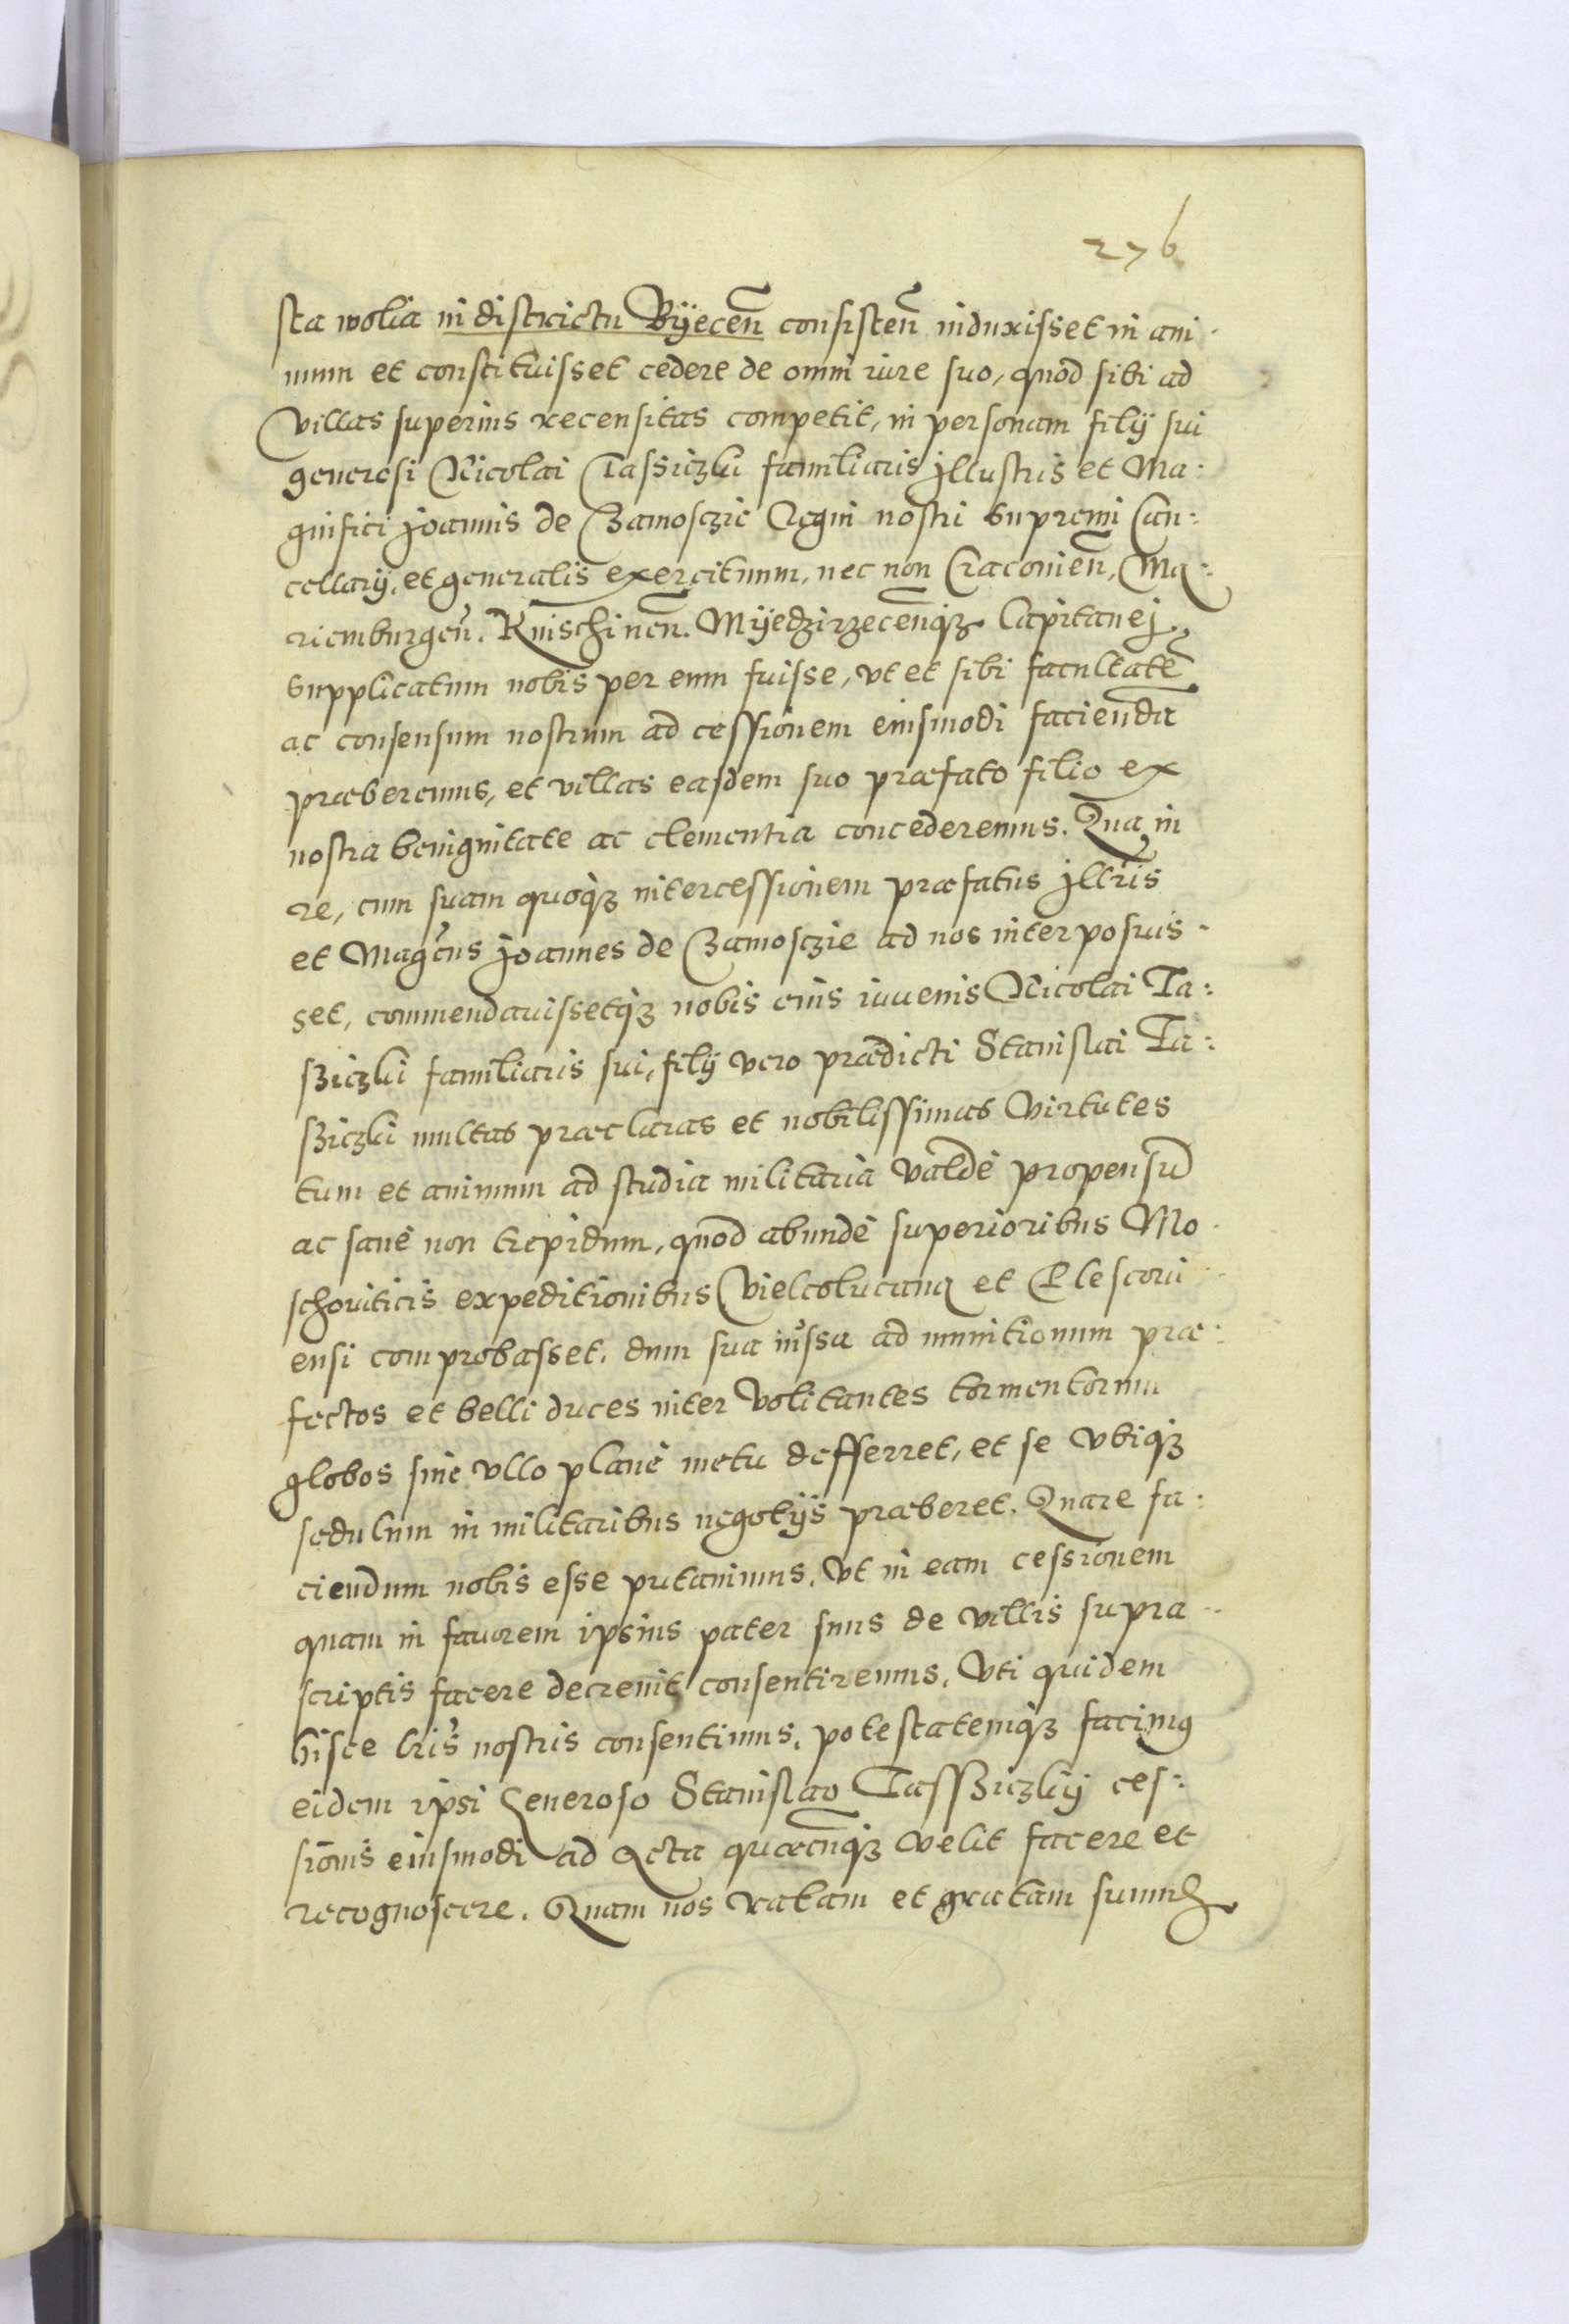 276
sta wolia in districtu Byecen̄ consisten̄ induxisset in ani-
mum et constituisset cedere de omni iure suo, quod sibi ad
villas superius recensitas competit, in personam filij sui
generosi Nicolai Tassiczki familiaris Jllustris et Ma:
gnifici Joannis de Zamosczie Regni nostri Supremi Can:
cellarij, et generalis exercituum, nec non Cracouien̄, Ma:
riemburgen̄. Knischinen̄. Myedzirzecen̄q₃ Capitanej.
Supplicatum nobis per eum fuisse, vt et sibi facultatē
ac consensum nostrum ad cessionem eiusmodi faciendā
præberemus, et villas easdem suo præfato filio ex
nostra benignitate ac clementia concederemus. Qua in
re, cum suam quoq₃ intercessionem præfatus Jllris
et Magcus Joannes de Zamosczie ad nos interposuis-
set, commendauissetq₃ nobis eius iuuenis Nicolai Ta:
sziczki familiaris sui, filij vero prædicti Stanislai Ta:
sziczki multas præclaras et nobilissimas virtutes
tum et animum ad studia militaria valdè propensū
ac sanè non trepidum, quod abundè superioribus Mo-
schouiticis expeditionibus Vielcolucana et Plescoui-
ensi comprobasset, dum sua iussa ad munitionum præ:
fectos et belli duces inter volitantes tormentorum
globos sine vllo planè metu defferret, et se vbiq₃
sedulum in militaribus negotijs præberet. Quare fa:
ciendum nobis esse putauimus, vt in eam cessionem
quam in fauorem ipsius pater suus de villis supra-
scriptis facere decreuit consentiremus, Vti quidem
hisce lris nostris consentimus, potestatemq₃ facimus
eidem ipsi Generoso Stanislao Tassziczky ces:
sionis eiusmodi ad Acta quæcunq₃ velit facere et
recognoscere. Quam nos ratam et gratam summe